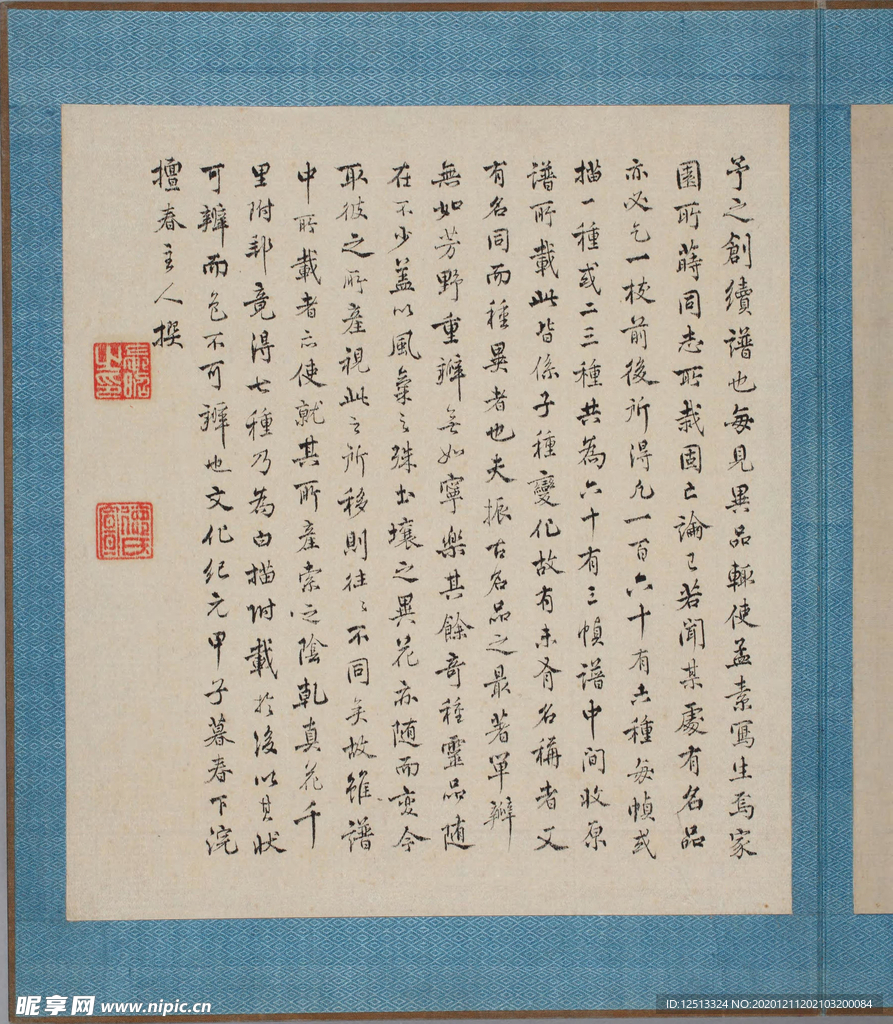 予之創續譜也每見異品輒使孟素寫生焉家
園所蒔同志所栽固亡論已若聞某處有名品
亦必乞一枝前後所得凡一百六十有六種每幀或
描一種或二三種共為六十有三幀譜中間收原
譜所載此皆係子種變化故有未有名稱者又
有名同而種異者也夫振古名品之最著單瓣
無如芳野重瓣無如寧樂其餘奇種靈品随
在不少蓋以風氣之殊土壤之異花亦随而變今
取彼之所產視此之所移則往々不同矣故雖譜
中所載者亦使就其所產索之陰乾真花千
里附郵竟得七種乃為白描附載於後以其狀
可辨而色不可辨也文化紀元甲子暮春下浣
擅春主人撰
昵享网 www.nipic.cn
ID:12513324 NO:20201211202103200084